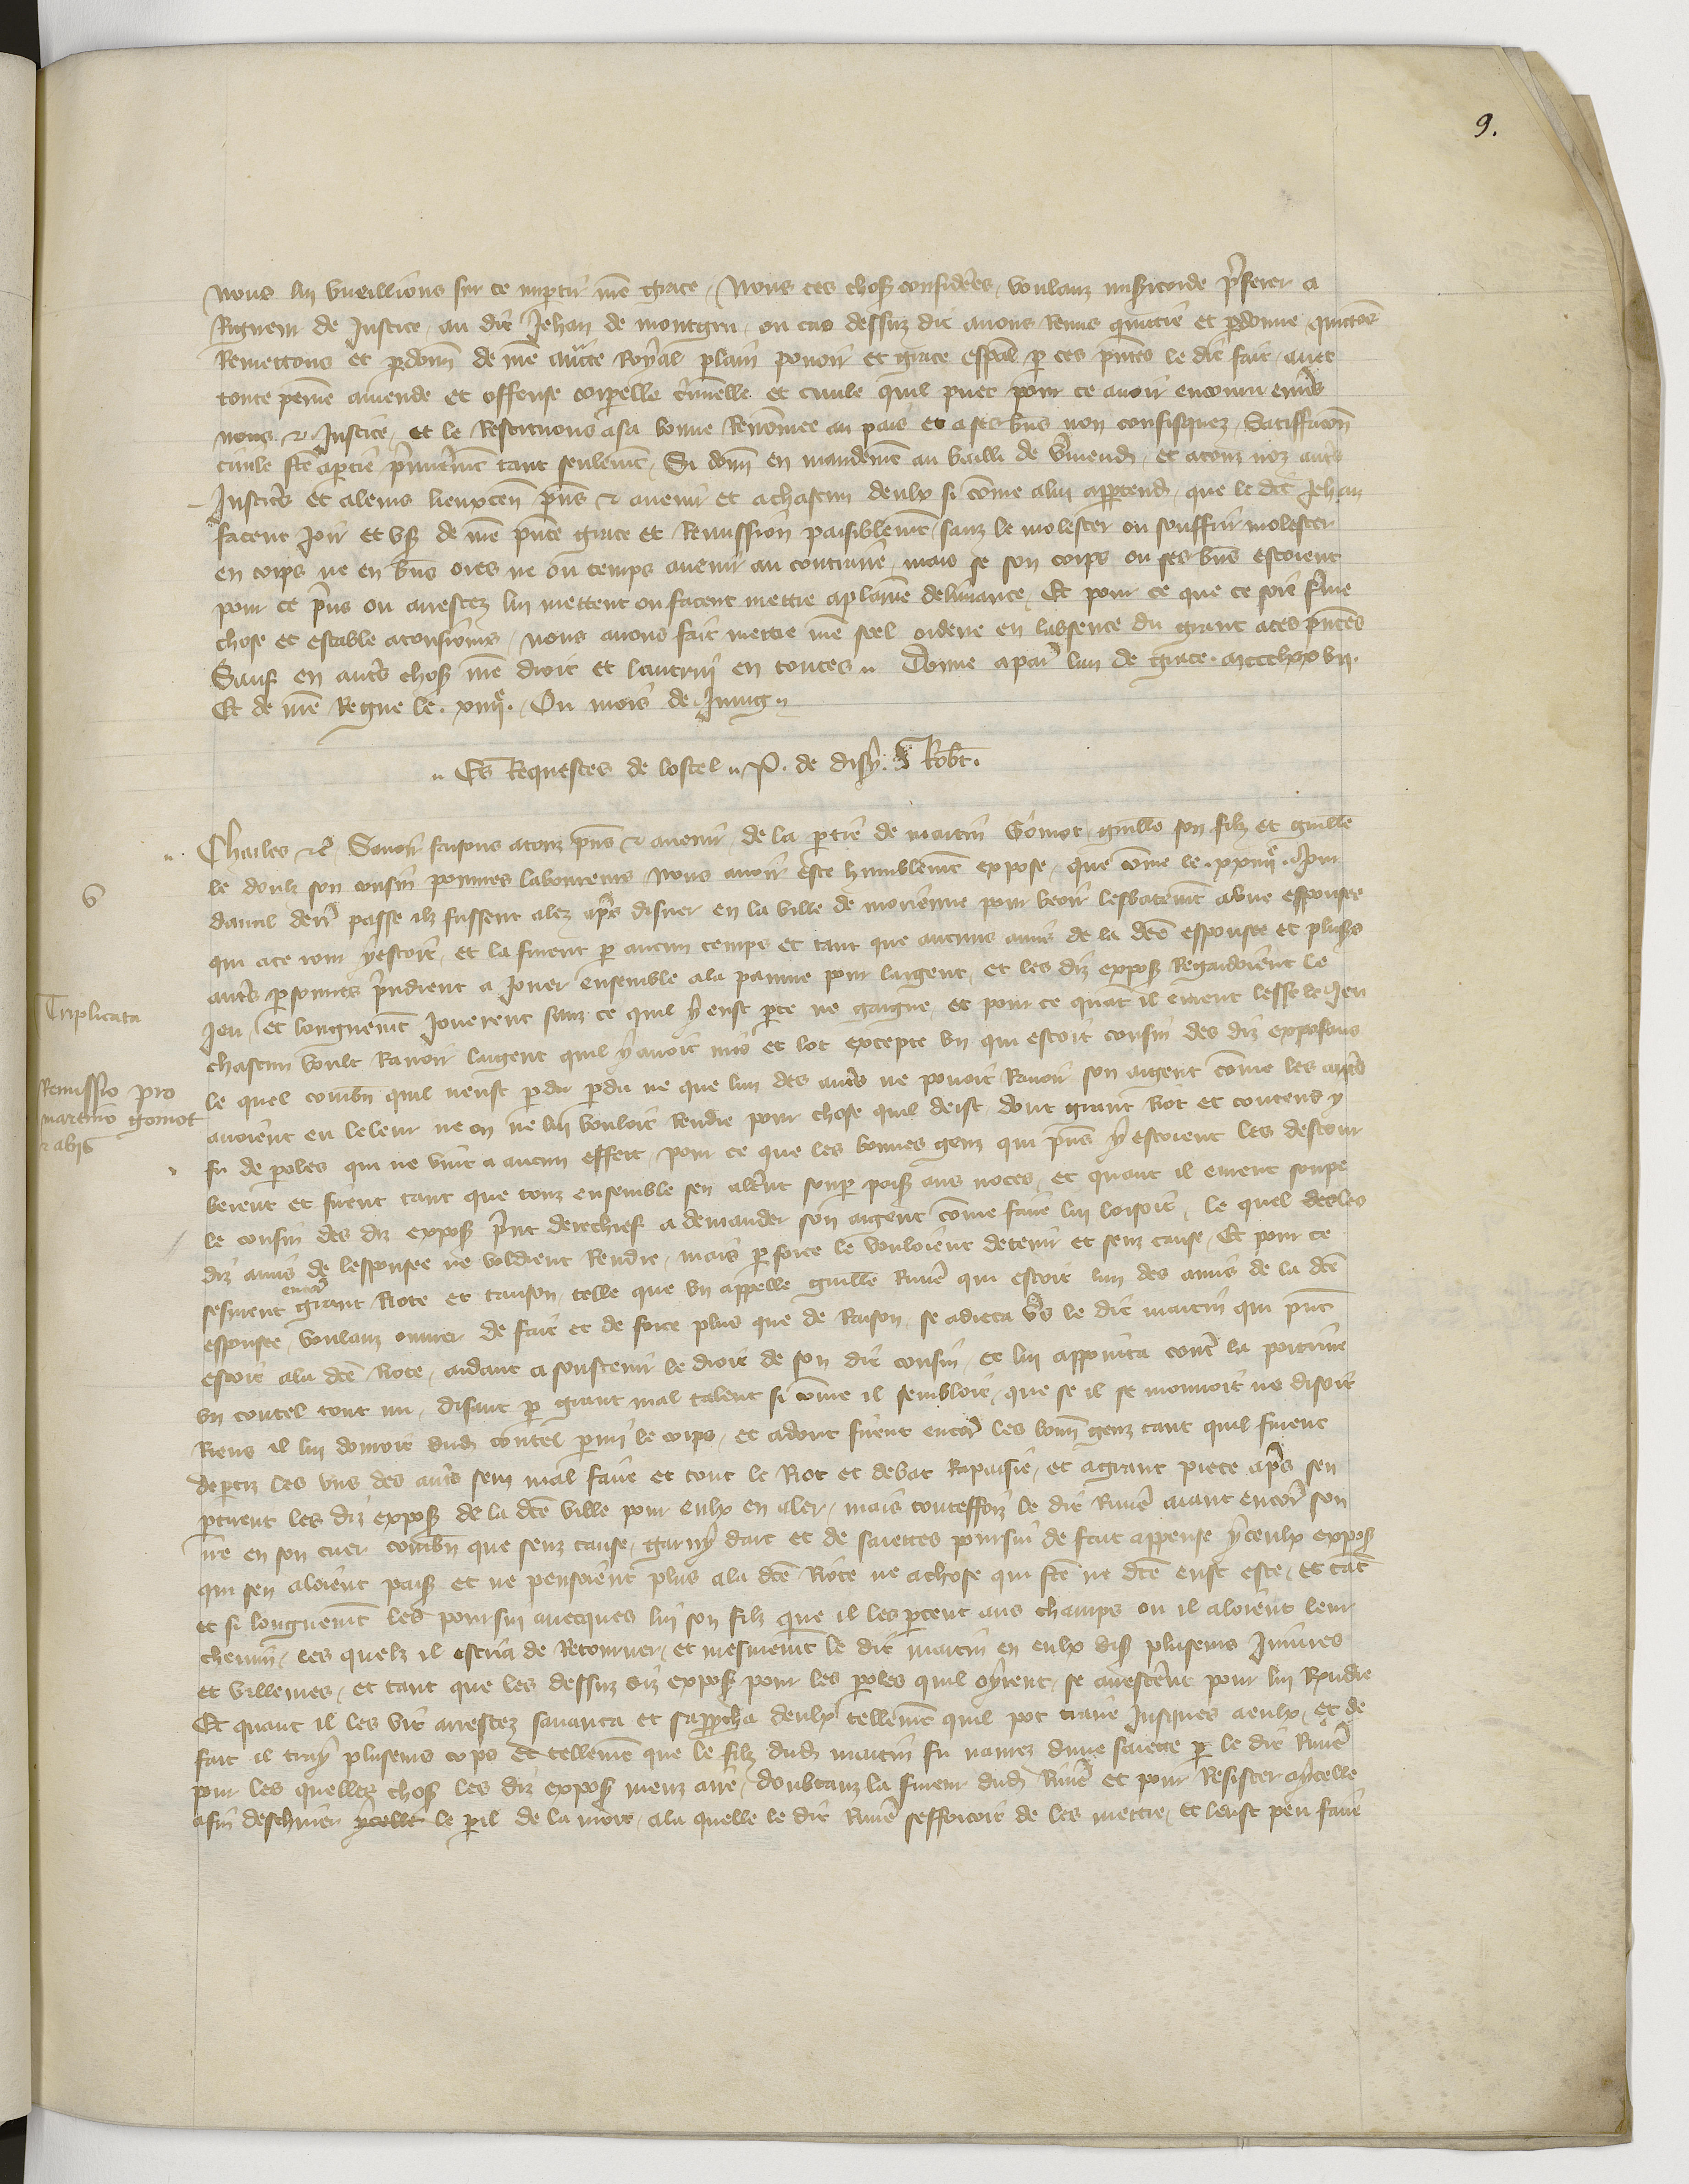 9.
nous lui vueillions sur ce impartir nre grace / Nous ces choses considerees / voulanz misericorde preferer a
Rigueur de Justice / au dit Jehan de montgru / ou cas dessuz dit avons Remis quittie et pardonne quittons
Remettons et pardonnons de nre auctte Royal plain povoir et grace espal par ces pntes le dit fait / avec
toute peine amende et offense corporelle criminelle et civile quil puet pour ce avoir encouru envers
nous & Justice / et le Restituons a sa bonne Renommee au pais et a ses biens non confisquez / Satisfaccon
civile fte a partie premierement tant seulement / Si donn en mandement au bailli de Vermend / et a touz noz autres
Justiciers et a leurs lieuxten pns & avenir et a chascun deulx si comme a lui appartend / que le dit Jehan
facent Joir et user de nre pnte grace et Remission paisiblement / sanz le molester ou souffrir molester
en corps ne en biens ores ne ou temps avenir au contraire / mais se son corps ou ses biens estoient
pour ce prins ou arrestez lui mettent ou facent mettre a plaine delivrance / Et pour ce que ce soit ferme
chose et estable a tousiours / nous avons fait mettre nre seel ordene en labsence du grant a ces pntes
Sauf en autres choses nre droit et lautrui en toutes / Donne a paris lan de grace mccclxxvii
Et de nre Regne le xiiiie / Ou mois de Juing
Es Requestes de lostel P. de disy. J Robt.
Charles &c Savoir faisons a touz pns & avenir / de la partie de martin Gomot / guille son filz et guille
le doulz son cousin povres laboureurs / Nous avoir este humblement expose / que comme le xxiiiie Jour
davril derr passe ilz fussent alez apres disner en la ville de morienne pour veoir lesbatement dune espousee
qui a ce iour y estoit / et la furent par aucun temps et tant que aucuns amis de la dte espousee et plusrs
autres personnes prindrent a Jouer ensemble a la paume pour largent / et les diz exposans Regardoient le
Jeu / et longuement Jouerent sanz ce quil y eust perte ne gaigne / et pour ce quant il eurent lesse le Jeu
chascun voult Ravoir largent quil y avoit mis et lot excepte un qui estoit cousin des diz exposans
le quel combien quil neust perdu perdu ne que lun des autres ne povoit Ravoir son argent comme les autres
avoient eu leleur ne on ne lui vouloit Rendre pour chose quil deist / dont grant Riot et contend y
fu de paroles qui ne vint a aucun effect / pour ce que les bonnes genz qui pns y estoient les destour
berent et firent tant que touz ensemble sen alerent soup paisiblement aus noces / et quant il eurent soupe
le cousin des diz exposans print derechief a demander son argent comme faire lui loisoit / le quel desles
diz amis de lespousee ne voldrent Rendre / mais par force le vouloient detenir et senz cause / Et pour ce
sesmeut encor grant Riote et tanson / telle que un appelle guille River qui estoit lun des amis de la dte
espousee / voulanz ouvrer de fait et de force plus que de Raison / se adreca vers le dit martin qui pnt
estoit a la dte Riote / aidant a soustenir le droit de son dit cousin / et lui appointa contre la poitrine
un coutel tout nu / disant par grant mal talent si comme il sembloit / que se il se mouvoit ne disoit
Riens il lui donroit dud coutel parmi le corps / et adont furent encor les bonn genz tant quil furent
departiz les uns des autres senz mal faire et tout le Riot et debat Rapaisie / et a grant piece apres sen
partirent les diz exposans de la dte ville pour eulx en aler / mais touteffoiz le dit River aiant encor son
ire en son cuer combien que senz cause / garny darc et de saiettes poursui de fait appense yceulx exposans
qui sen aloient paisiblement et ne pensoient plus a la dte Riote ne a chose qui fte ne dte eust este / et tant
et si longuement les poursui avecques lui son filz que il les percent aus champs ou il aloient leur
chemin / les quelz il escria de Retourner / et mesmement le dit martin en eulx disant plusieurs Iniures
et villenies / et tant que les dessuz diz exposans pour les paroles quil oyrent / se arresterent pour lui Rendre
Et quant il les vit arrestez savanca et sapproucha deulx tellement quil pot traire Jusques a eulx / et de
fait il tray plusieurs cops et tellement que le filz dud martin fu navrez dune saiette par le dit River
pour les quelles choses les diz exposans meuz aire / doubtanz la fureur dud River et pour Resister a ycelle
afin deschiver ycelle le peril de la mort / a la quelle le dit River sefforcoit de les mettre / et leust peu faire
6
Triplicata
Remissio pro
martino gomot
& aliis